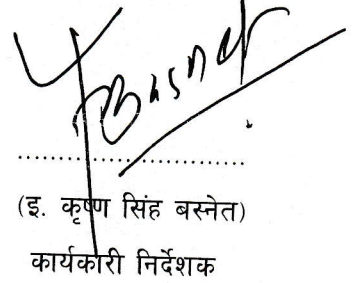 Basnet
..............................
(इ. कृष्ण सिंह बस्नेत)
कार्यकारी निर्देशक